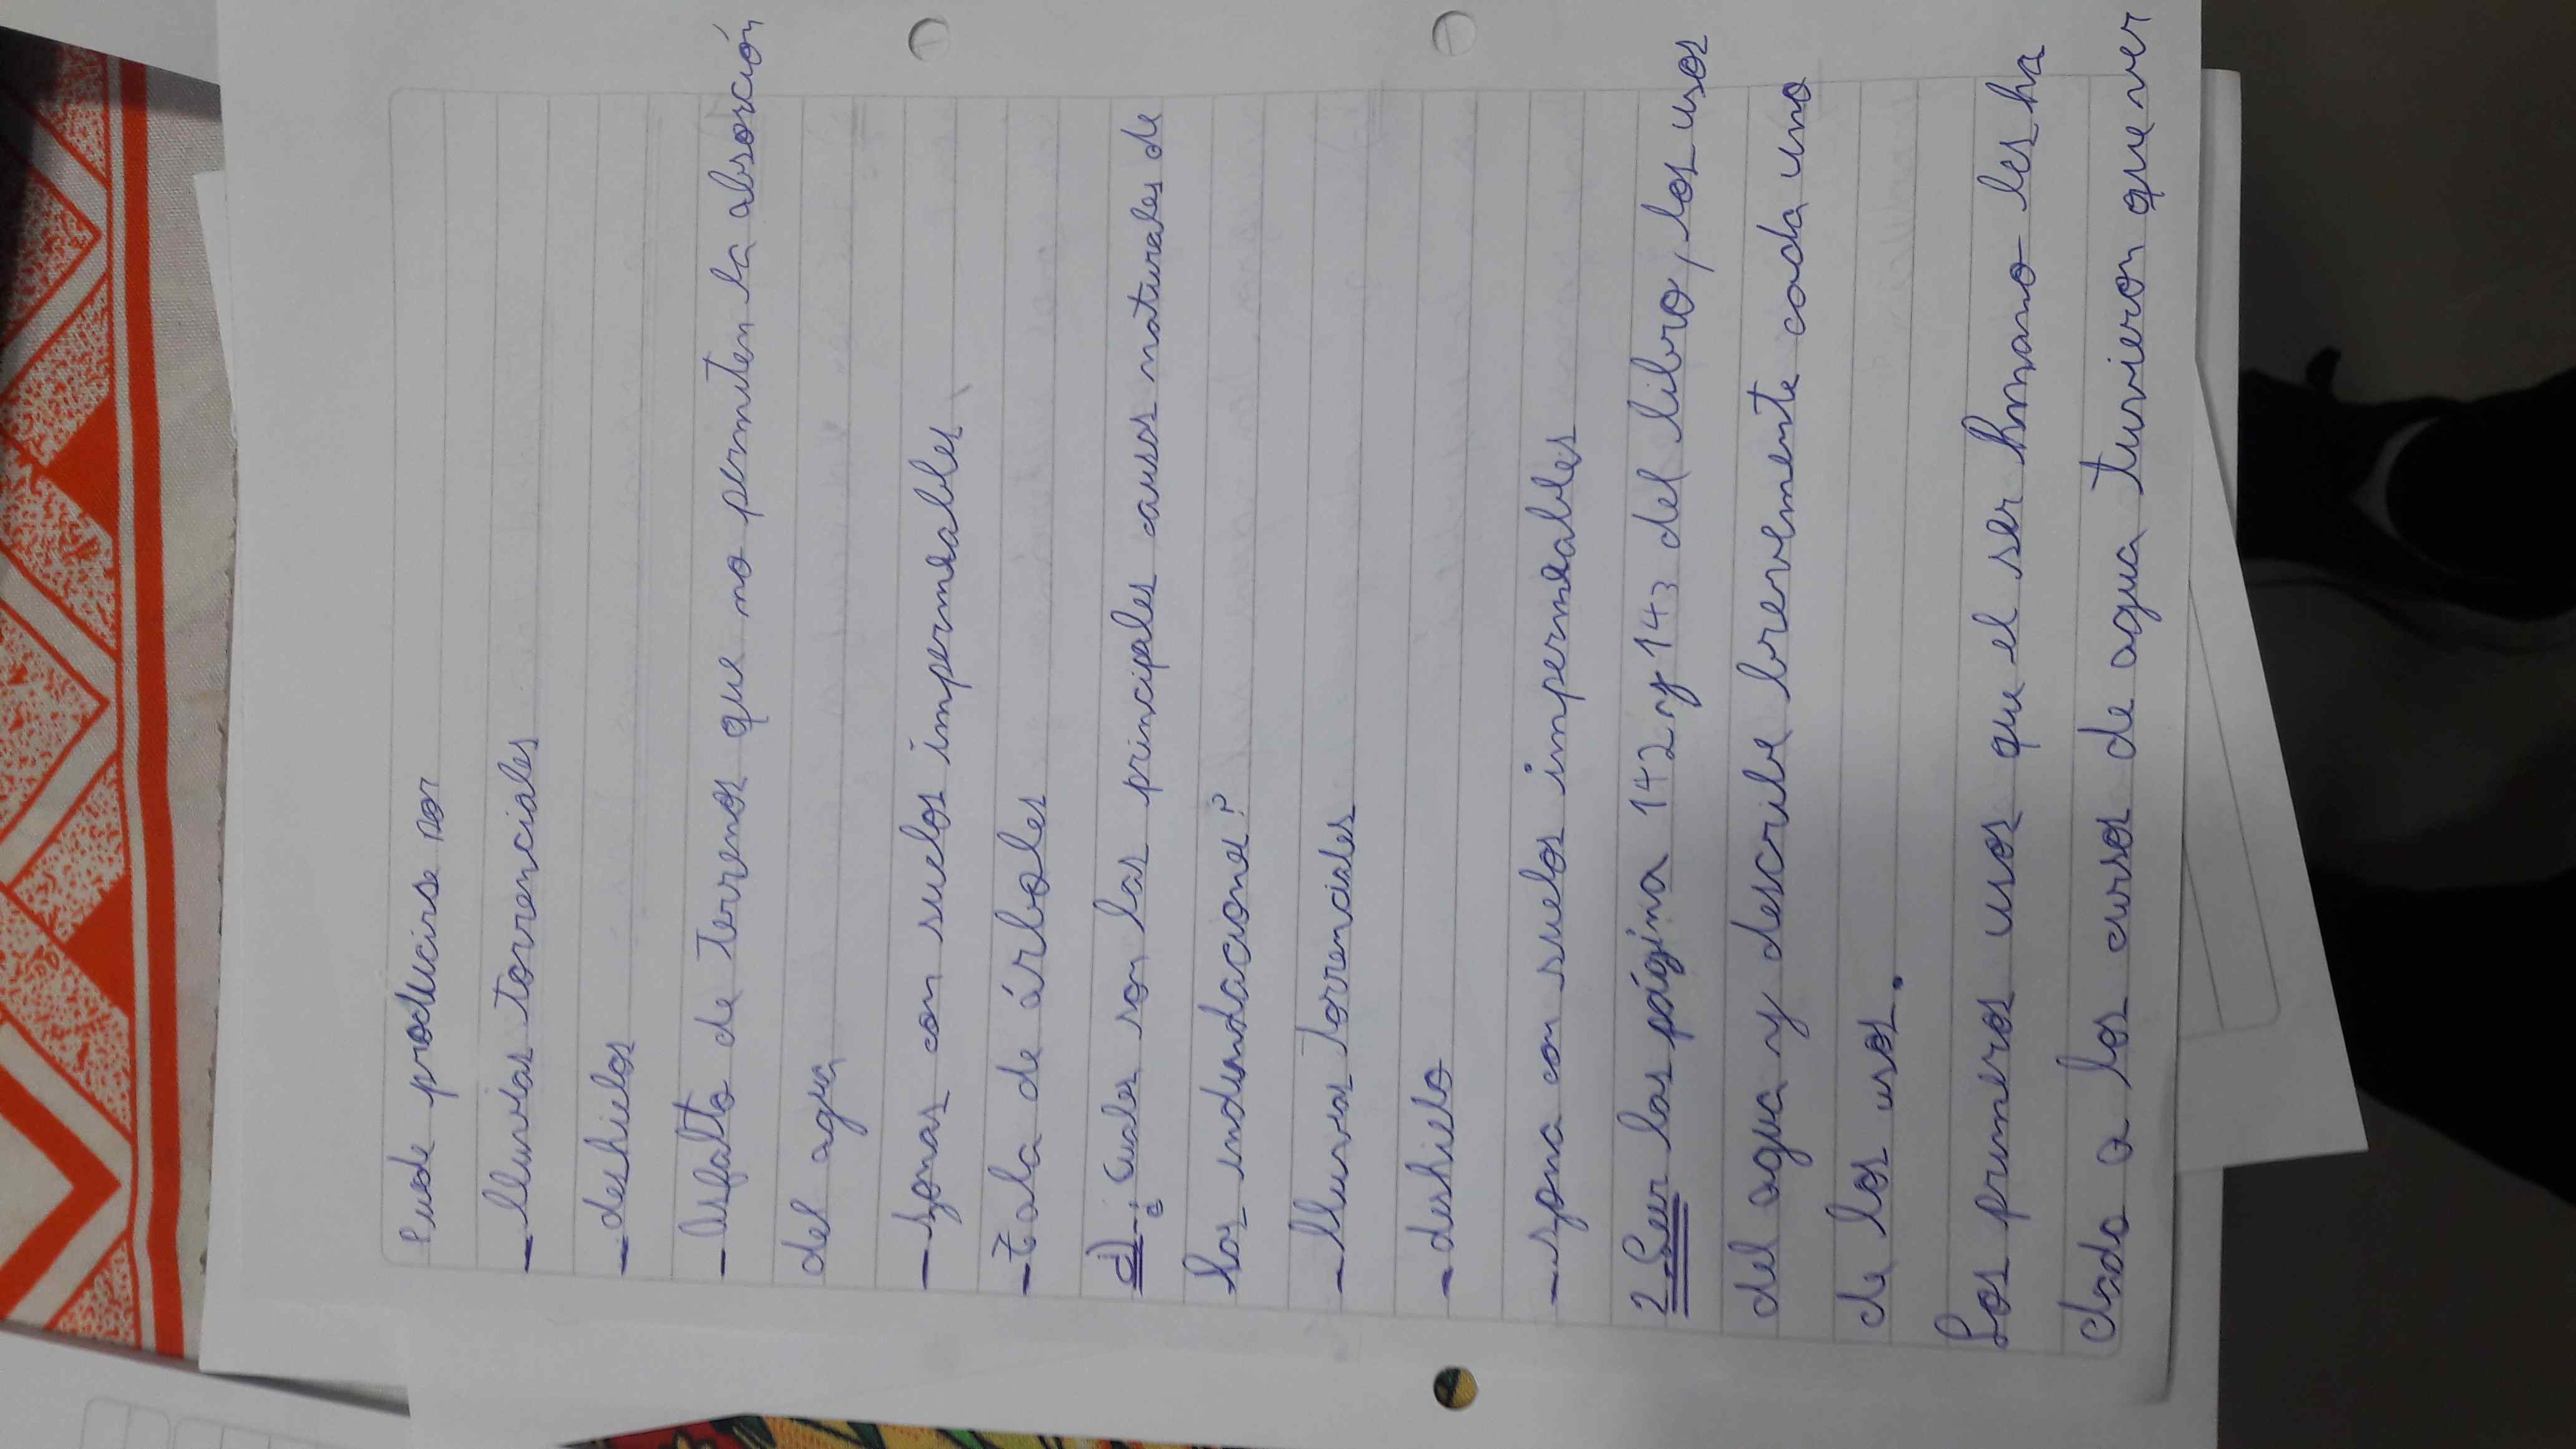 Puede producirse por
- lluvias torrenciales
- deshielos
- Asfalto de terrenos que no permiten la absorción
del agua
- zonas con suelos impermeables
- Tala de árboles
d) - ¿Cuales son las principales causas naturales de
las indundaciones?
- lluvias Torrenciales
- deshielo
- zona con suelos impermeables
2- Leer las página 142 y 143 del libro, los usos
del agua y describe brevemente cada uno
de los usos.
Los primeros usos que el ser humano les ha
dado a los curso de agua tuvieron que ver